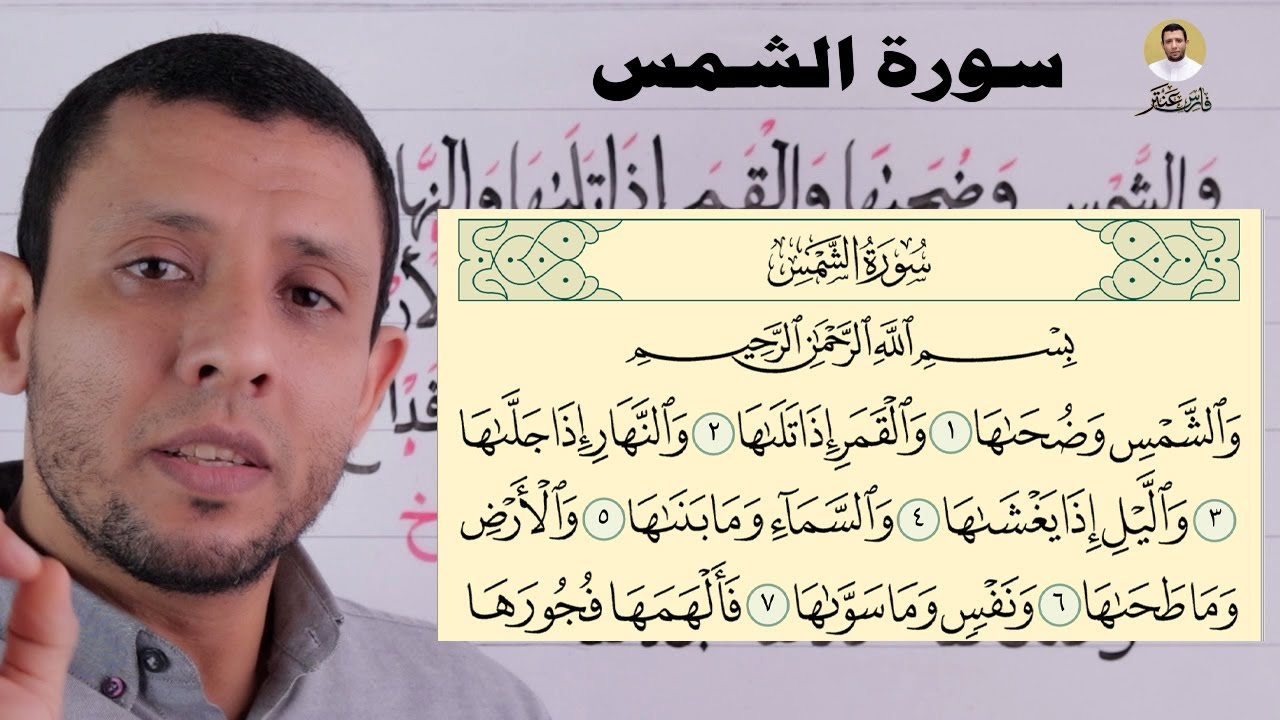 سورة الشمس
فارس عنتر
وَالشَّمْسِ وَضُحَىٰهَا وَالْقَمَرِ إِذَا تَلَىٰهَا وَالنَّهَا
سُورَةُ الشَّمْسِ
بِسْمِ ٱللَّهِ ٱلرَّحْمَٰنِ ٱلرَّحِيمِ
وَٱلشَّمْسِ وَضُحَىٰهَا ١ وَٱلْقَمَرِ إِذَا تَلَىٰهَا ٢ وَٱلنَّهَارِ إِذَا جَلَّىٰهَا
٣ وَٱلَّيْلِ إِذَا يَغْشَىٰهَا ٤ وَٱلسَّمَآءِ وَمَا بَنَىٰهَا ٥ وَٱلْأَرْضِ
وَمَا طَحَىٰهَا ٦ وَنَفْسٍ وَمَا سَوَّىٰهَا ٧ فَأَلْهَمَهَا فُجُورَهَا